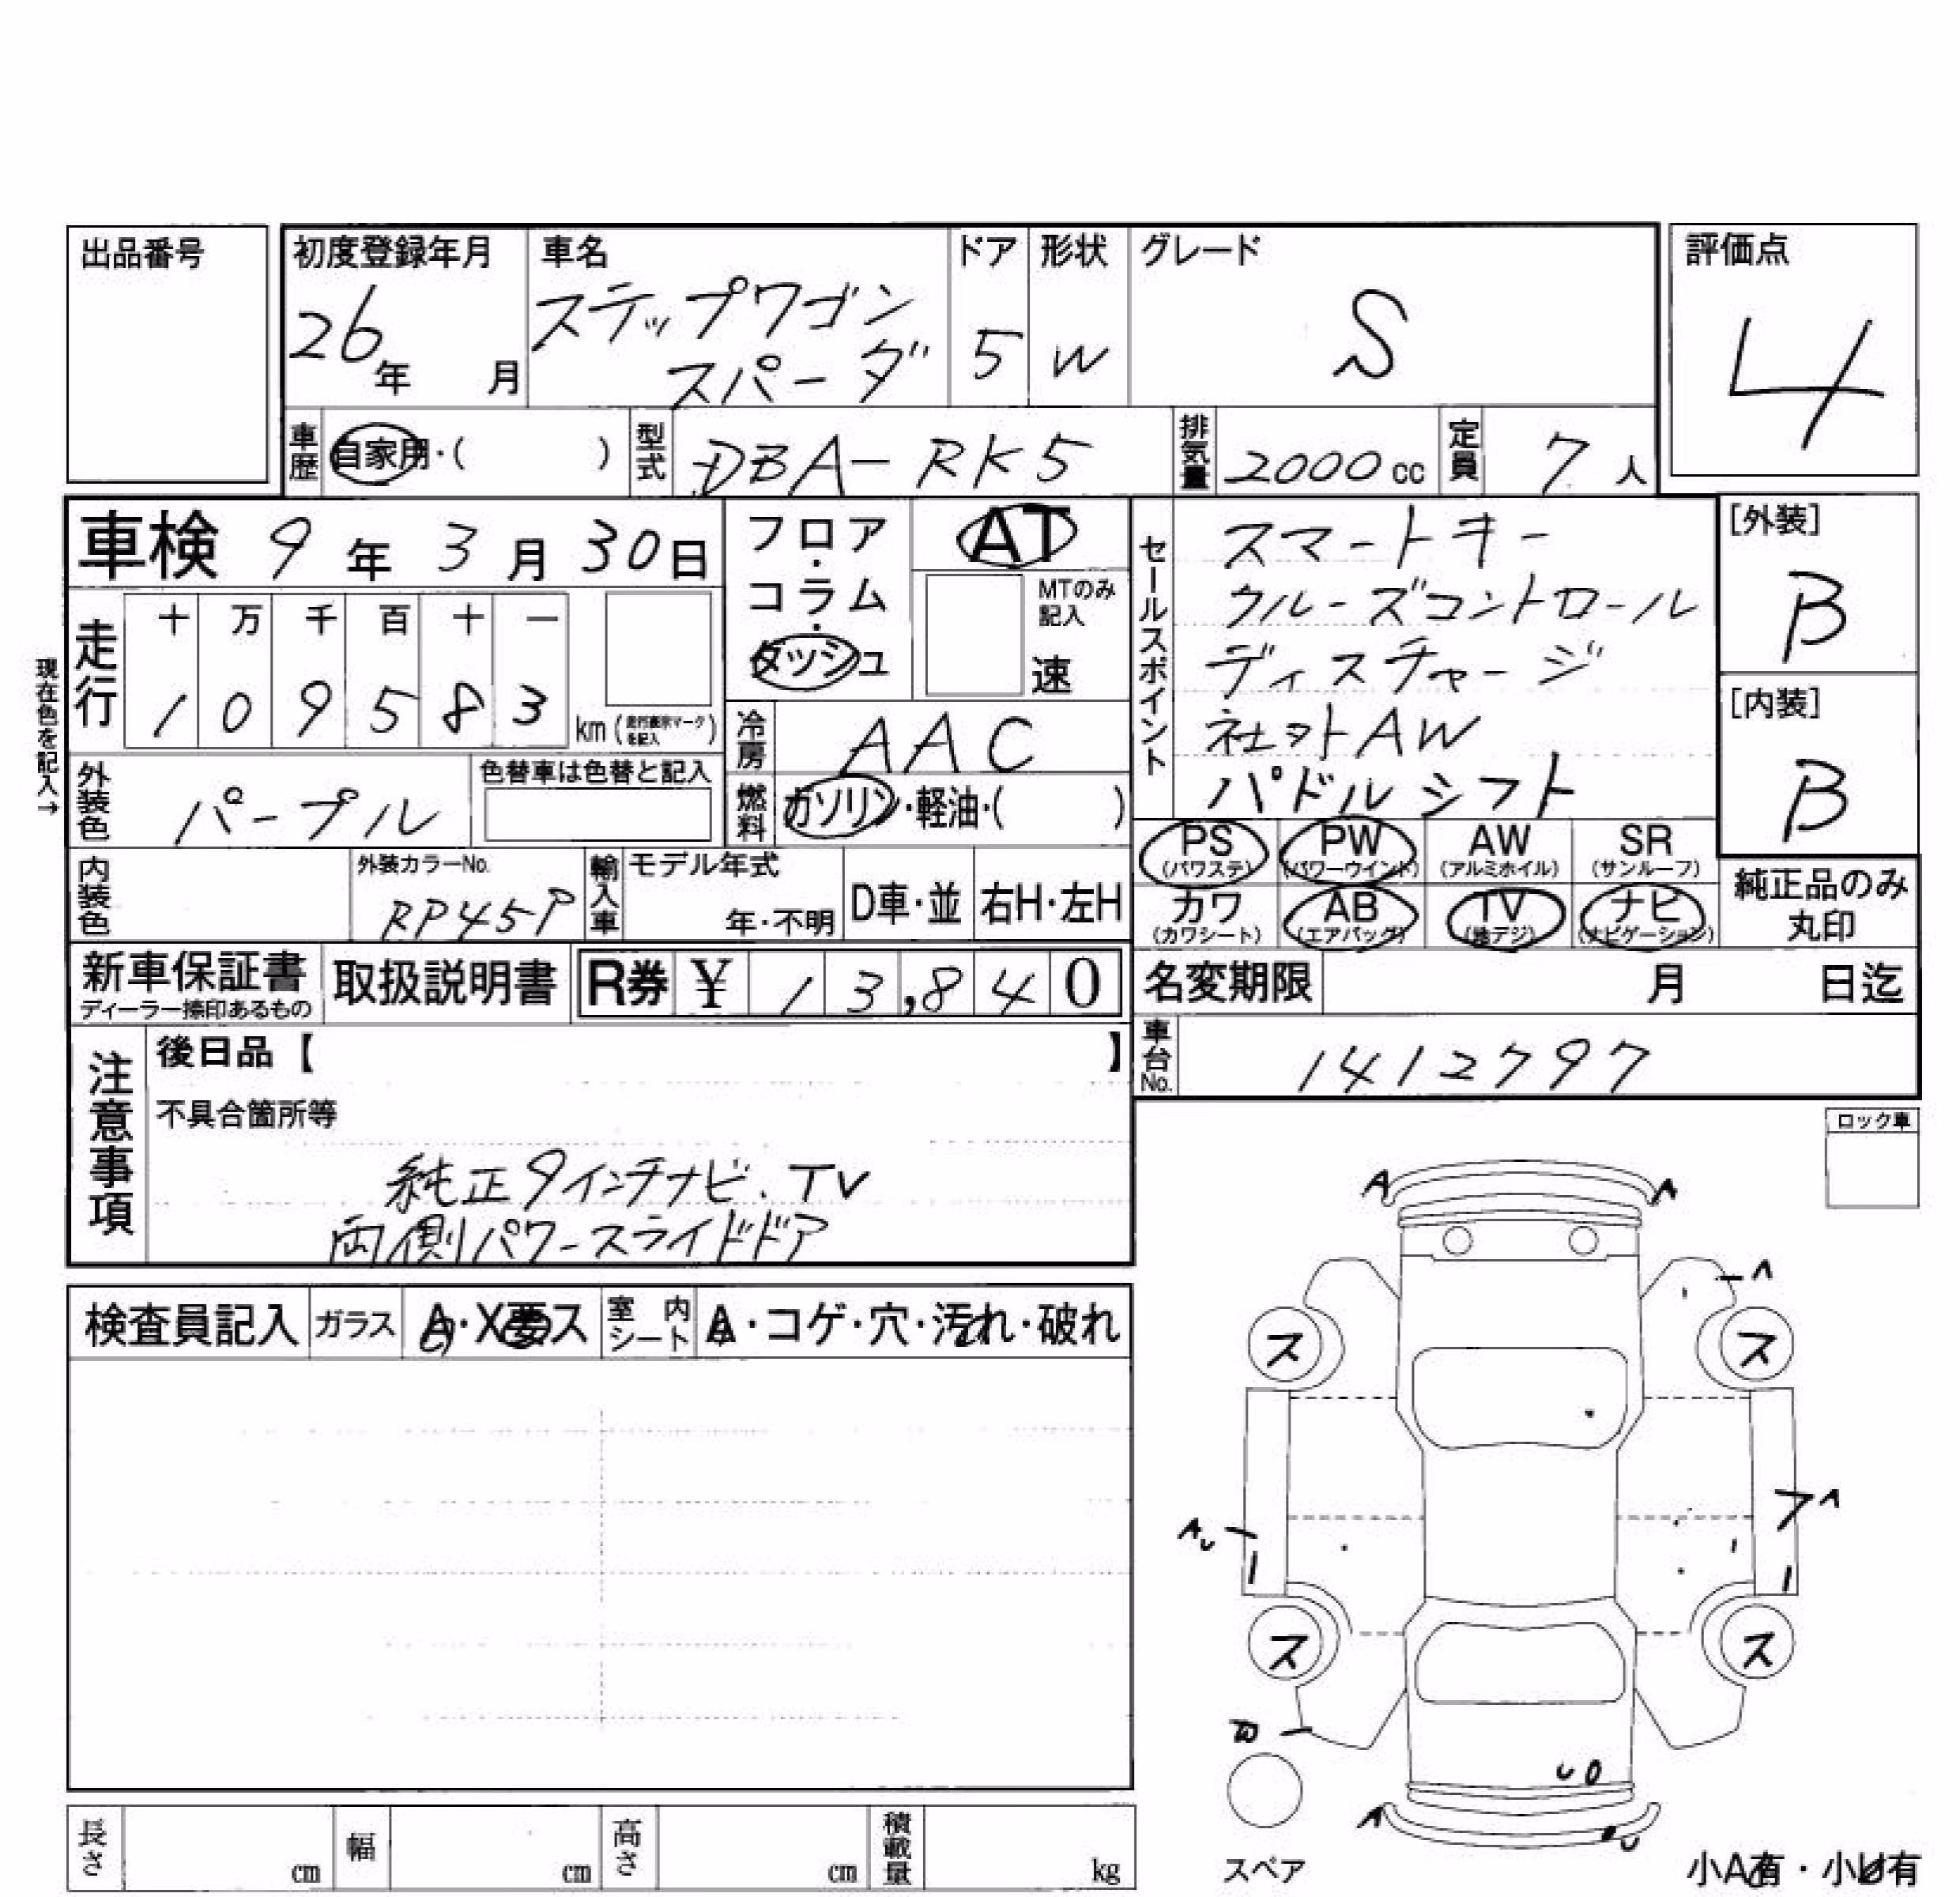 出品番号
初度登録年月 車名 ドア 形状 グレード 評価点
26年 月 ステップワゴン スパーダ 5 W S 4
車歴 自家用・( ) 型式 DBA-RK5 排気量 2000cc 定員 7人
車検 9年 3月 30日
フロア・コラム・ダッシュ
AT
MTのみ記入
速
走行 十 万 千 百 十 一
1 0 9 5 8 3 km (走行表示マークを記入)
現在色を記入→
冷房 AAC
外装色 パープル 色替車は色替と記入
燃料 ガソリン・軽油・( )
内装色 外装カラーNo. RP45P 輸入車 モデル年式 年・不明 D車・並 右H・左H
セールスポイント
スマートキー
クルーズコントロール
ディスチャージ
社外AW
パドルシフト
[外装]
B
[内装]
B
PS (パワステ) PW (パワーウインド) AW (アルミホイル) SR (サンルーフ)
カワ (カワシート) AB (エアバッグ) TV (地デジ) ナビ (ナビゲーション)
純正品のみ丸印
新車保証書 ディーラー捺印あるもの 取扱説明書 R券 ¥ 13,840
名変期限 月 日迄
車台No. 1412797
注意事項
後日品【 】
不具合箇所等
純正9インチナビ.TV
両側パワースライドドア
ロック車
検査員記入 ガラス A・X要ス 室内シート A・コゲ・穴・汚れ・破れ
A A
A
ス ス
A
A U
ス ス
U
A
U
スペア
小A有・小U有
長さ cm 幅 cm 高さ cm 積載量 kg